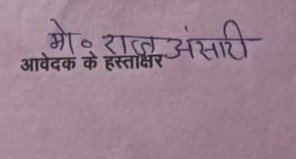 मो० राजा अंसारी
आवेदक के हस्ताक्षर